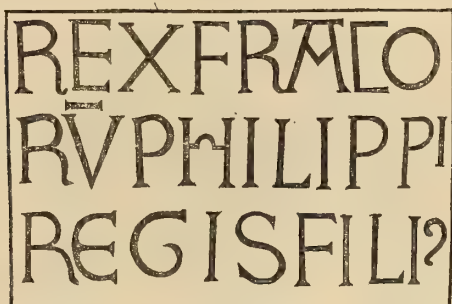 REXFRACO
RV̄PHILIPPI
REGISFILIꝰ